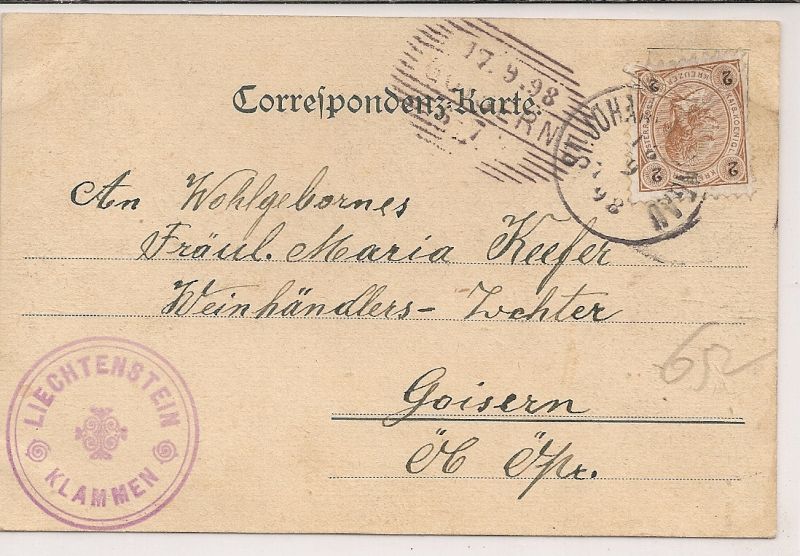 Correspondenz-Karte.
17.9.98
GOISERN
ST. JOHA
98
2 2
2 2
An Wohlgebornes
Fräul. Maria Keefer
Weinhändlers- Tochter
Goisern
Öb Öfr.
65
LIECHTENSTEIN
KLAMMEN